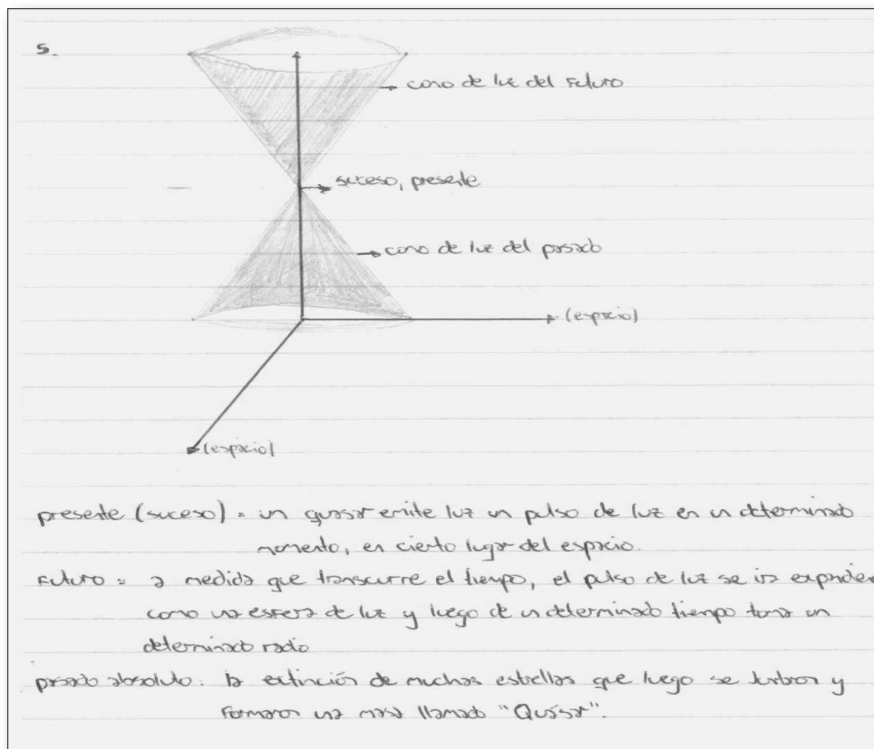 5.
cono de luz del Futuro
suceso, presente
cono de luz del pasado
(espacio)
(espacio)
presente (suceso) = un quasar emite luz un pulso de luz en un determinado
momento, en cierto lugar del espacio.
Futuro = a medida que transcurre el tiempo, el pulso de luz se ira
como una esfera de luz y luego de un determinado tiempo toma un
determinado radio
pasado absoluto: la extinción de muchas estrellas que luego se y
Formaron una masa llamado "Quasar".